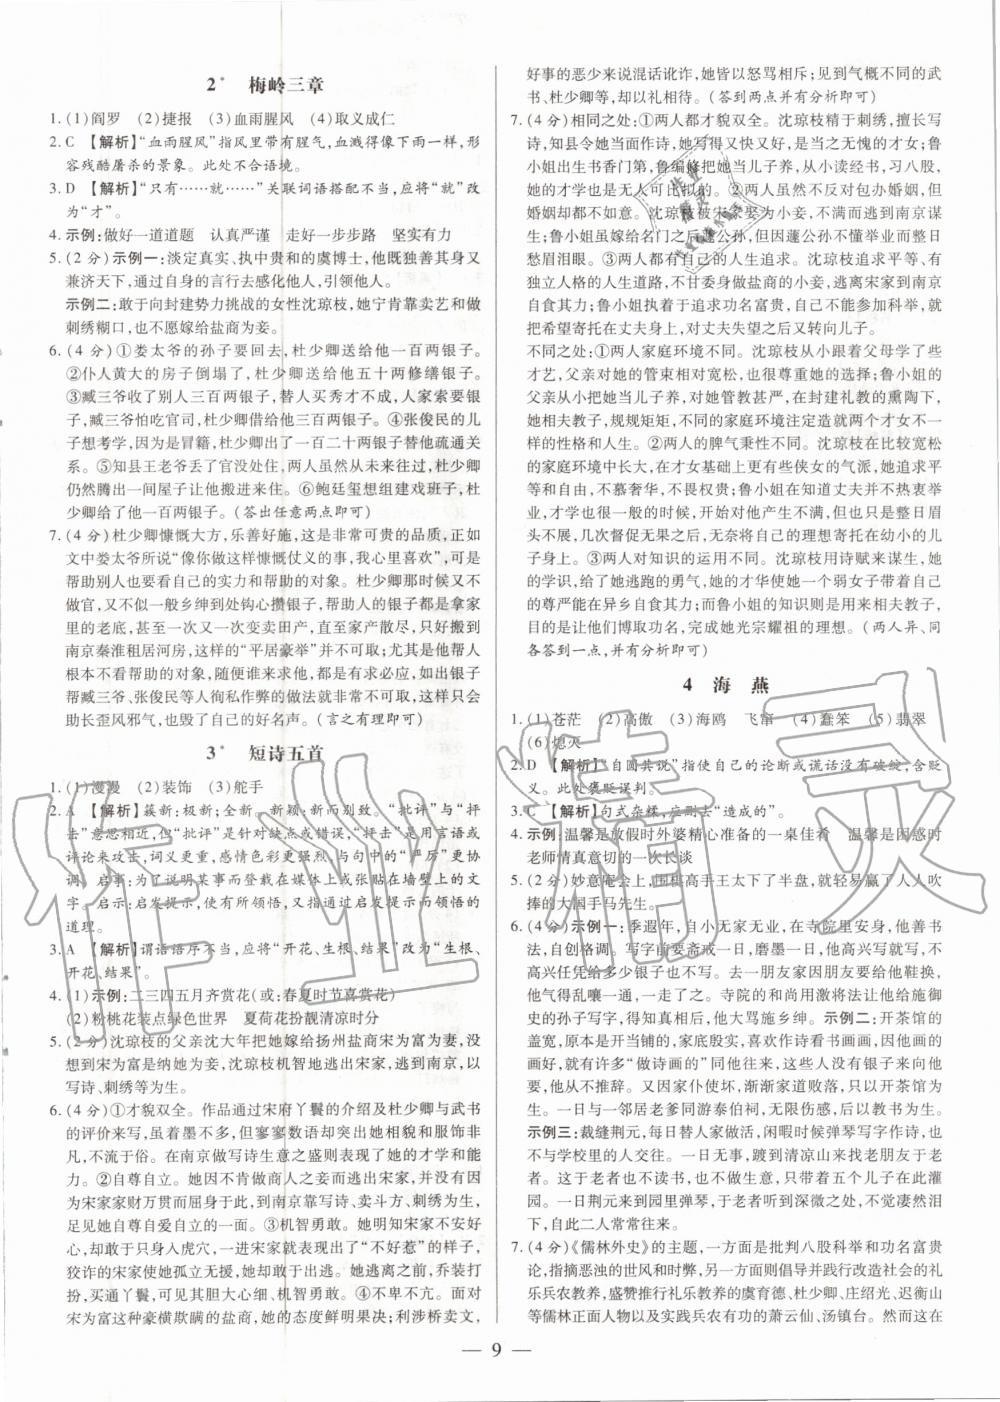 2* 梅岭三章
1. (1)阎罗 (2)捷报 (3)血雨腥风 (4)取义成仁
2. C 【解析】“血雨腥风”指风里带有腥气，血溅得像下雨一样，形
容残酷屠杀的景象。此处不合语境。
3. D 【解析】“只有……就……”关联词语搭配不当，应将“就”改
为“才”。
4. 示例：做好一道道题 认真严谨 走好一步步路 坚实有力
5. (2分)示例一：淡定真实、执中贵和的虞博士，他既独善其身又
兼济天下，通过自己的言行去感化他人，引领他人。
示例二：敢于向封建势力挑战的女性沈琼枝，她宁肯靠卖艺和做
刺绣糊口，也不愿嫁给盐商为妾。
6. (4分)①娄太爷的孙子要回去，杜少卿送给他一百两银子。
②仆人黄大的房子倒塌了，杜少卿送给他五十两修缮银子。
③臧三爷收了别人三百两银子，替人买秀才不成，人家索要银
子，臧三爷怕吃官司，杜少卿借给他三百两银子。④张俊民的儿
子想考学，因为冒籍，杜少卿出了一百二十两银子帮他疏通关
系。⑤知县王老爷丢了官没处住，两人虽然从未来往过，杜少卿
仍然腾出一间屋子让他搬进来住。⑥鲍廷玺想组建戏班子，杜
少卿给了他一百两银子。(答出任意两点即可)
7. (4分)杜少卿慷慨大方，乐善好施，这是非常可贵的品质，正如
文中娄太爷所说“像你做这样慷慨仗义的事，我心里喜欢”，可是
帮助别人也要看自己的实力和帮助的对象。杜少卿几代不
做官，又不似一般乡绅到处钩心攒银子，帮助人的银子都是拿家
里的老底，甚至一次又一次变卖田产，直到家产散尽，只好搬到
南京秦淮租居河房，这样的“平居豪举”并不可取；尤其是他帮人
根本不看帮助别人做什么，为什么需要帮助，比如他拿银子
帮臧三爷、张俊民等人徇私作弊的做法就非常不可取，这样只会
助长歪风邪气，也毁了自己的好名声。(言之有理即可)
3* 短诗五首
1. (1)漫漫 (2)装饰 (3)舵手
2. A 【解析】簇新：极新；全新。新颖：新而别致。“批评”与“抨
击”意思相近，但“批评”是针对缺点或错误，“抨击”是用言语或
评论来攻击，词义更重，感情更强烈，与句中的“严厉”更协
调。启事：为了说明某事而登载在媒体上或张贴在墙壁上的文
字。启示：启发提示，使有所领悟，又指通过启发提示领悟的
道理。
3. A 【解析】谓语语序不当，应将“开花、生根、结果”改为“生根、
开花、结果”。
4. (1)示例：二三四五月齐赏花(或：春夏时节喜赏花)
(2)粉桃花装点绿色世界 夏荷花扮靓清凉时分
5. (2分)沈琼枝的父亲沈大年把她嫁给扬州盐商宋为富为妻，没
想到宋为富是纳她为妾，沈琼枝机智地逃出宋家，逃到南京，以
写诗、刺绣等为生。
6. (4分)①才貌双全。作品通过宋府丫鬟的介绍及杜少卿与武书
的评价来写，虽然着墨不多，但寥寥数语却突出她相貌和服饰非
凡，不流于俗。在南京做刺绣写诗生意之盛则表现了她的才学和能
力。②自尊自立。她因不肯做商人之妾而逃出宋家，并没有因为
宋家家财万贯而屈身于此，到南京靠写诗、卖斗方、刺绣谋生，
足见她自尊自立的一面。③机智勇敢。她明知宋家不安好
心，却只身入虎穴，一进宋家就表现了“不好惹”的性格；当
狡诈的宋家使她孤立无援，便当即想出对策，收拾行装，乔装打
扮，五更时从后门出逃，都表现出了她的机智勇敢。④不卑不亢。面对
宋为富这种豪横欺瞒的盐商，她的态度鲜明果决；利涉桥卖文，
好事的恶少来说混话讹诈，她皆以怒骂相斥；见到气概不同的武
书、杜少卿等，却以礼相待。(答到两点并有分析即可)
7. (4分)相同之处：①两人都才貌双全。沈琼枝精于刺绣，擅长写
诗，知县令其当面作诗，她写得又快又好，是当之无愧的才女；鲁
小姐出生书香门第，鲁编修把她当儿子养，从小读经书，习八股，
她的才学也是无人可比拟的。②两人虽然不是包办婚姻，但
婚姻却不如意。沈琼枝被宋家娶为小妾，不甘命运逃到南京谋
生；鲁小姐虽嫁给名门之后蘧公孙，但因蘧公孙不求上进，整日
愁眉泪眼。③两人都有自己的人生追求。沈琼枝追求的是有
独立人格的人生道路，不甘委身做盐商的小妾，从宋家逃到南京
自食其力；鲁小姐执着于追求功名富贵，自己不能参加科举，就
把希望寄托在丈夫身上，对丈夫失望之后又转向儿子。
不同之处：①两人家庭环境不同。沈琼枝从小跟着父亲学了些
才艺，父亲对她的管束相对宽松，也很尊重她的选择；鲁小姐的
父亲从小把她当儿子养，对她管教甚严，在封建礼教的熏陶下，
她相夫教子，规规矩矩，不同的家庭环境注定造就两个才女不一
样的性格和人生。②两人的脾气秉性不同。沈琼枝在比较宽松
的家庭环境中长大，在才女基础上更有些侠女的气派，她追求平
等和自由，不慕奢华，不畏权贵；鲁小姐在知道丈夫并不热衷举
业，才学也很一般的时候，开始对他产生不满，但也只是整日眉
头不展，长吁短叹，最后，无奈将自己的理想寄托在幼小的儿
子身上。③两人对知识的运用不同。沈琼枝用诗赋来谋生，她
的知识给了她逃跑的勇气，她的才华使她一个弱女子带着自己
的尊严能在异乡自食其力；而鲁小姐的知识则是用来相夫教子，
目的是让他们博取功名，完成她光宗耀祖的理想。(两人异、同
各答到一点，并有分析即可)
4 海燕
1. (1)苍茫 (2)高傲 (3)海鸥 飞窜 (4)蠢笨 (5)翡翠
(6)熄灭
2. D 【解析】“自圆其说”指使自己的论断或谎话没有破绽，含贬
义。此处褒贬误判。
3. C 【解析】句式杂糅，应删去“造成的”。
4. 示例：温馨是放假时外婆精心准备的一桌佳肴 温馨是困惑时
老师情真意切的一次长谈
5. (2分)妙意庵会上，围棋高手王太下了半盘，就轻易赢了人人吹
捧的大国手马先生。
6. (4分)示例一：季遐年，自小无家无业，在寺院里安身，他善书
法，自创格调。写字前要斋戒一日，磨墨一日，他高兴写就写，不
高兴任凭给多少银子也不写。去一朋友家讨字因弄脏椅子
他便骂，乱嚷一通，走了。寺院的和尚用激将法让他去给施御
史的孙子写字，得知缘由，他大骂施乡绅。示例二：开茶馆的
盖宽，原本是开当铺的，家底殷实，喜欢作诗看书画画，因自己的
画好，就有许多“做诗画的”来同他往来。这些人没有银子来向他要，
他从不推辞。又因家人伙计使坏，渐渐家道败落，只以开茶馆为
生。后与一邻居老爹同游泰伯祠，无限伤感，后以教书为生。
示例三：裁缝荆元，每日替人家做活，闲暇时候弹琴写字作诗，也
不与学校里的人交往。一日无事，踱到清凉山来找朋友于
老者。这老者也不读书，也不做生意，在此带着他的五个儿子灌
园。一日荆元来到园里弹琴，于老者听到深微之处，不觉凄然泪
下，自此二人常常往来。
7. (4分)《儒林外史》的主题，一方面是批判八股科举和功名富贵
论，指摘恶浊的世风和时弊；另一方面则倡导并践行改造社会的礼
乐兵农教养，盛赞推行礼乐教养的虞育德、杜少卿、庄绍光、迟衡山
等儒林正面人物以及实践兵农有功的萧云仙、汤镇台。然而这在
— 9 —
作业精灵